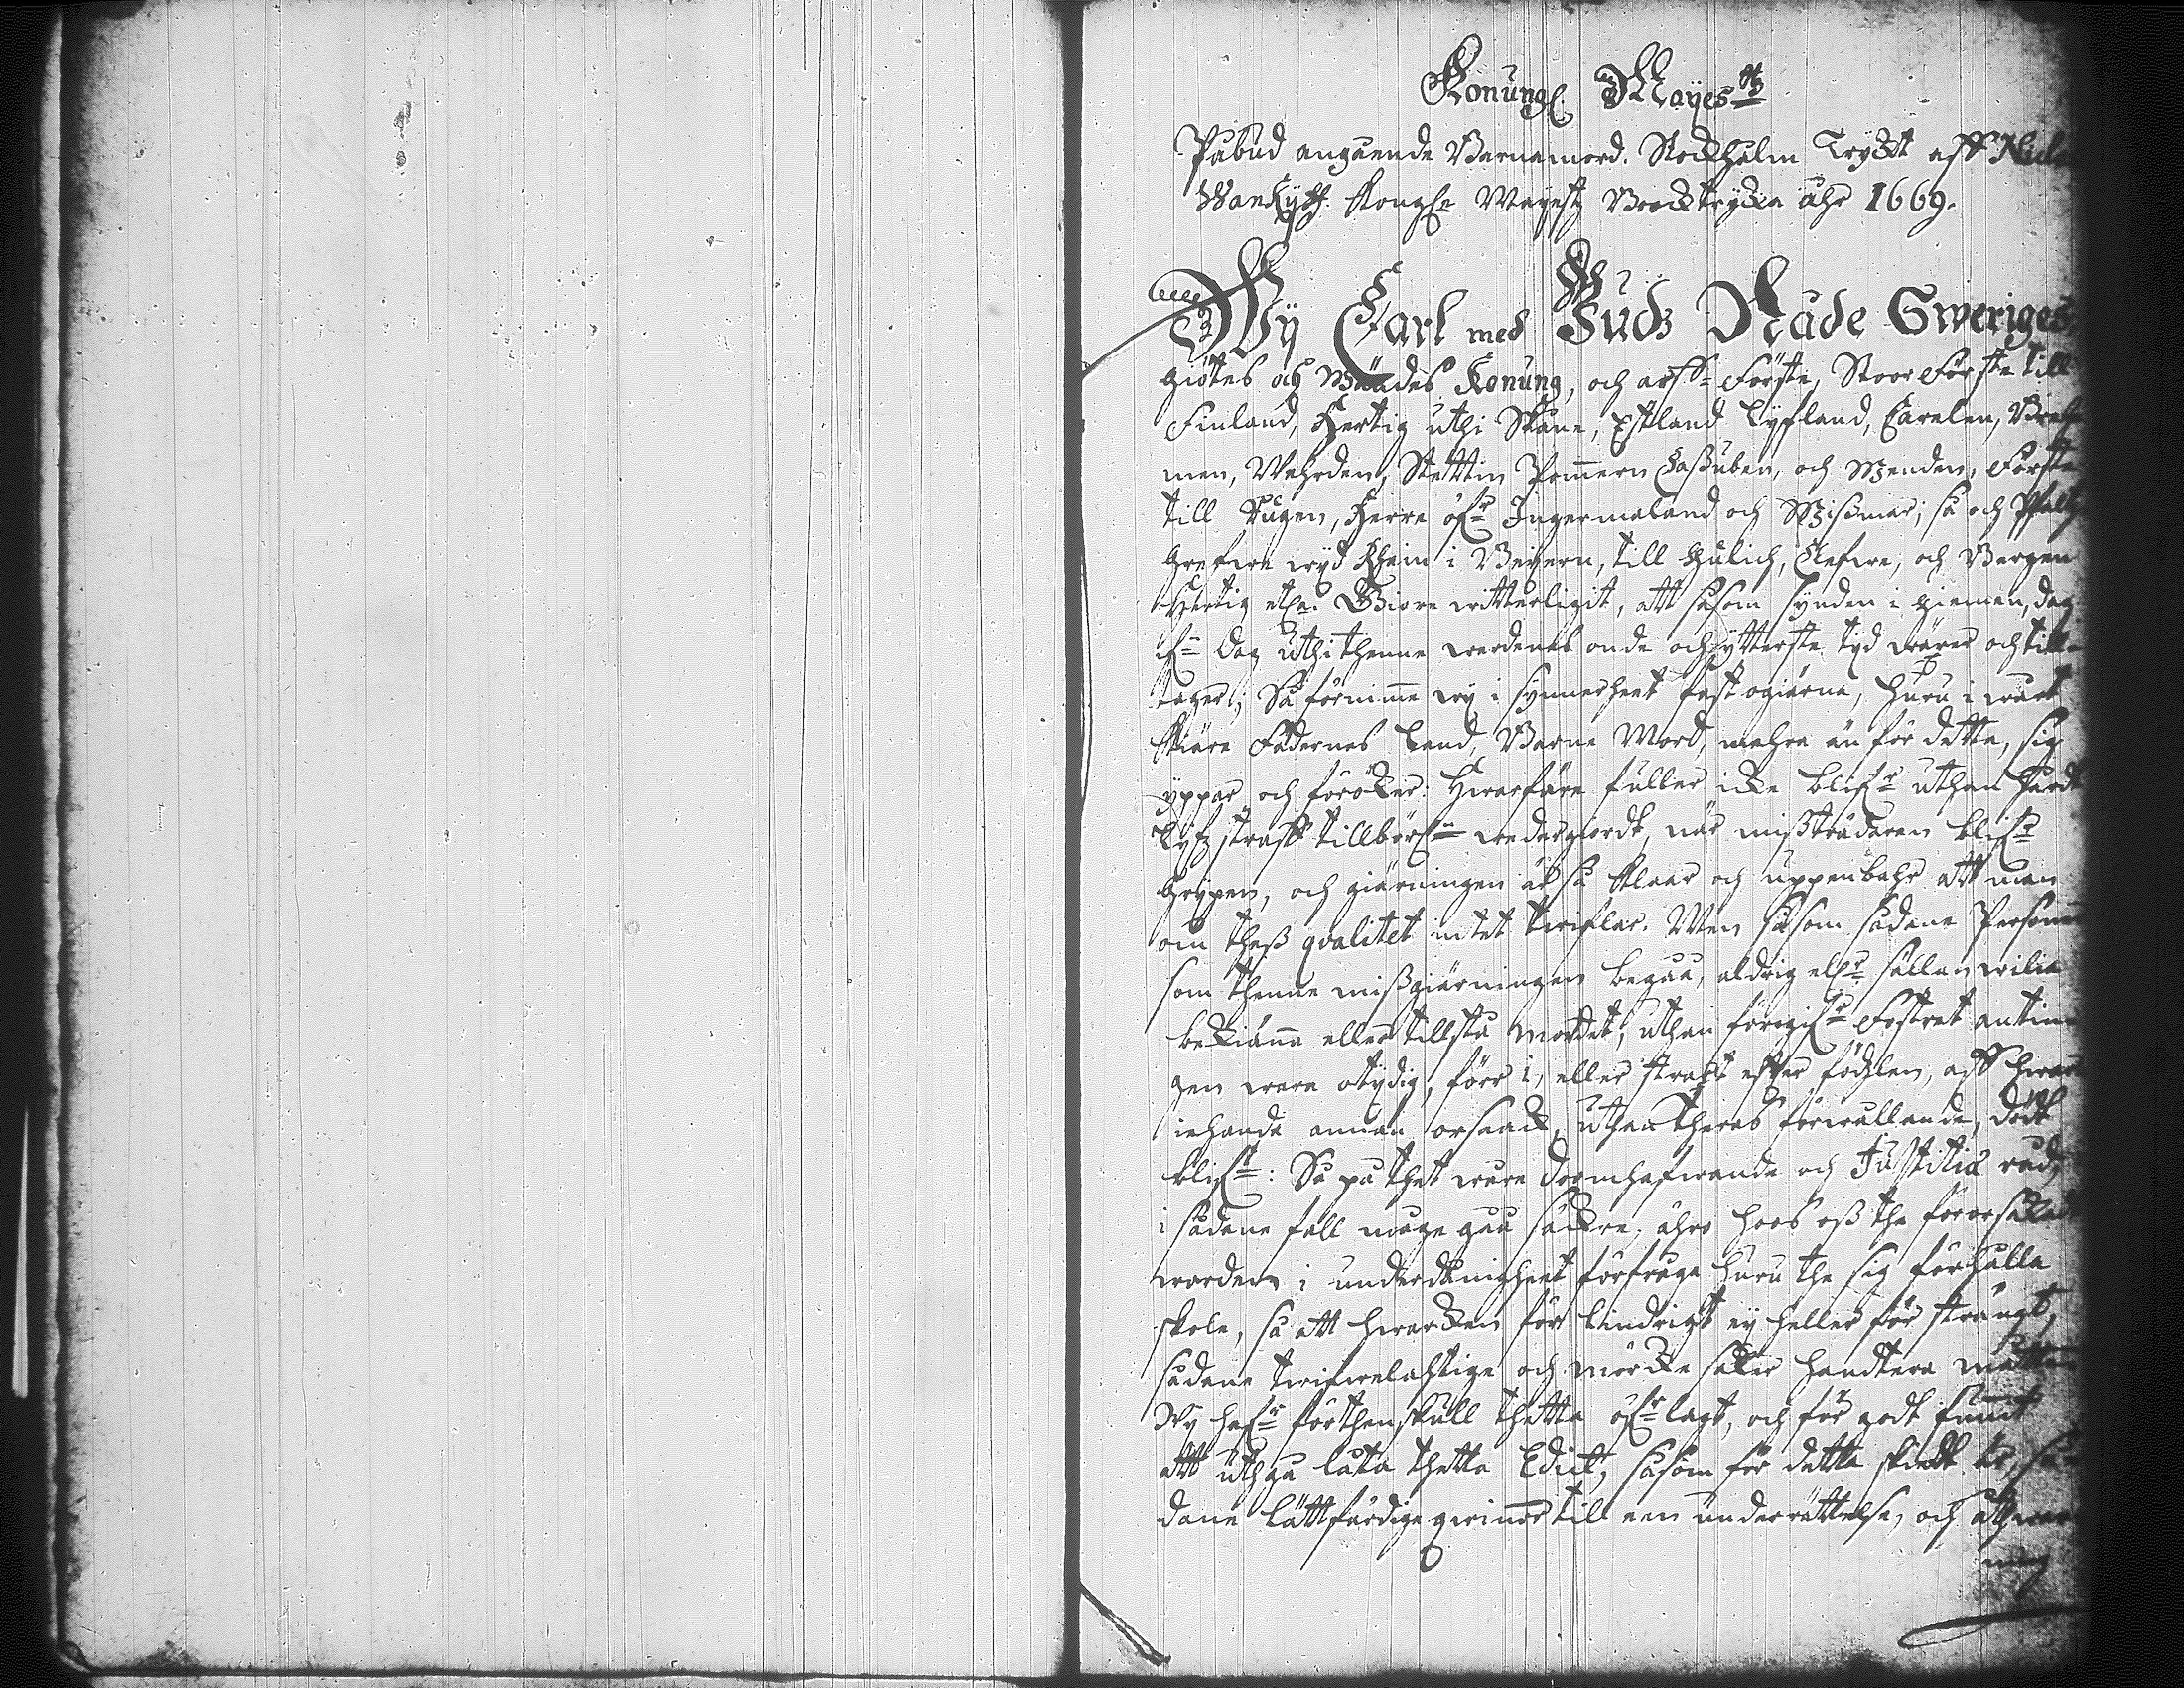 Konungl. Mayes:tz
Påbud angående Barnamord. Stockholm Tryckt aff Nicla
Wankijff. Kongl:e Mayestz Boocktryckia åhr 1669.
Wÿ Carl med Gudz Nåde Sweriges
Giötes och Wändes Konung, och arff-Förste, Stoor Förste till
Finland, Hertig uthi Skåne, Estland Lyfland, Carelen, Bre-
men, Wehrden, Stettin Pomern Cassuben, och Wenden, Förste
till Rügen, Herre öf:r Ingermaland och Wissmar; så och Pfaltz
Grefwe wyd Rhein i Beyern, till Gülich, Clefwe, och Bergen
Hertig etc. Giöre witterligit, att såsom synden i gemen, dag
ifrn dag uthi thenne werdenes onde och ytterste tyd wäxer och till-
tager; Så förnimme wy i synnerheet fast ogiärna, huru i wart
Kiäre Fädernes land, Barne Mord, mehra än för detta, sig
yppar och föröker: Hwarföre fuller icke blif:r uthan hårdt
Lyfz straff tillbörl:n wedergiordt, när missdådaren blif:r
Grypen, och giärningen är så klaar och uppenbahr att man
om thess qvalitet intet twiflar. Men såsom sådane Persone
som thenne missgiärningen begåå, aldrig ell:r sällan wilia
bekiänna eller tillstå mordet, uthan föregif:r Fostret antin-
gen ware otydig, förr i, eller straxt effter födzlen, aff hwar
iehanda annan orsaak, uthan theras förwållande, dödt
blif:t: Så på thet ware doomhafwande och Justitiæ råd,
i sådane fall måge gåå säkre, ähro hoos oss the förorsakade
worden i underdånigheet förfråga huru the sig förhålla
skole, så att hwarken för lindrigt ey heller för strängt,
sådane twifwelachtige och mörcke saker handtera måtte
Wy haf:r förthenskull thetta öf:r lagt, och för godt funnit
att uthgå låta thetta Edict, såsom för detta skiedt är, så-
dane lättfärdige qwinor till een underrättelse, och åthwar
ning